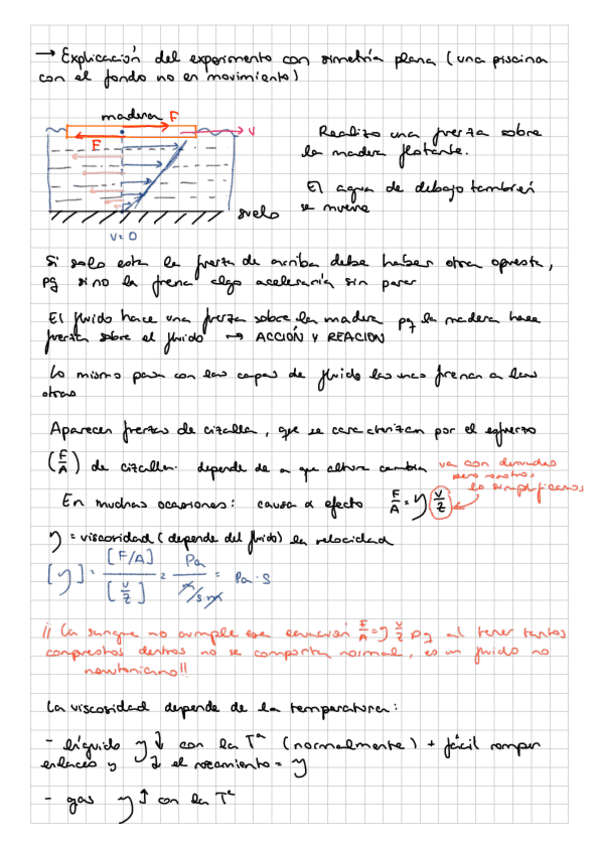 → Explicación del experimento con simetría plana (una piscina
con el fondo no en movimiento)
madera F
F
v
v=0
suelo
Realizo una fuerza sobre
la madera flotante.
El agua de debajo también
se mueve
Si solo esta la fuerza de arriba debe haber otra opuesta,
pq si no la frena algo aceleraría sin parar
El fluido hace una fuerza sobre la madera pq la madera hace
fuerza sobre el fluido → ACCIÓN Y REACIÓN
Lo mismo pasa con las capas de fluido las unas frenan a las
otras
Aparecen fuerzas de cizalla, que se caracterizan por el esfuerzo
(F/A) de cizalla. depende de a que altura cambia
va con derivadas
pero nosotros
lo simplificamos
En muchas ocasiones: causa α efecto F/A = η v/z
η = viscosidad (depende del fluido) la velocidad
[η] = [F/A] / [v/z] = Pa / m/s·m = Pa·s
¡¡ La sangre no cumple esa ecuación F/A = η v/z pq al tener tantos
compuestos dentros no se comporta normal, es un fluido no
newtoniano!!
La viscosidad depende de la temperatura:
- líquido η ↓ con la Tª (normalmente) + fácil romper
enlaces y ↓ el rozamiento = η
- gas η ↑ con la Tª